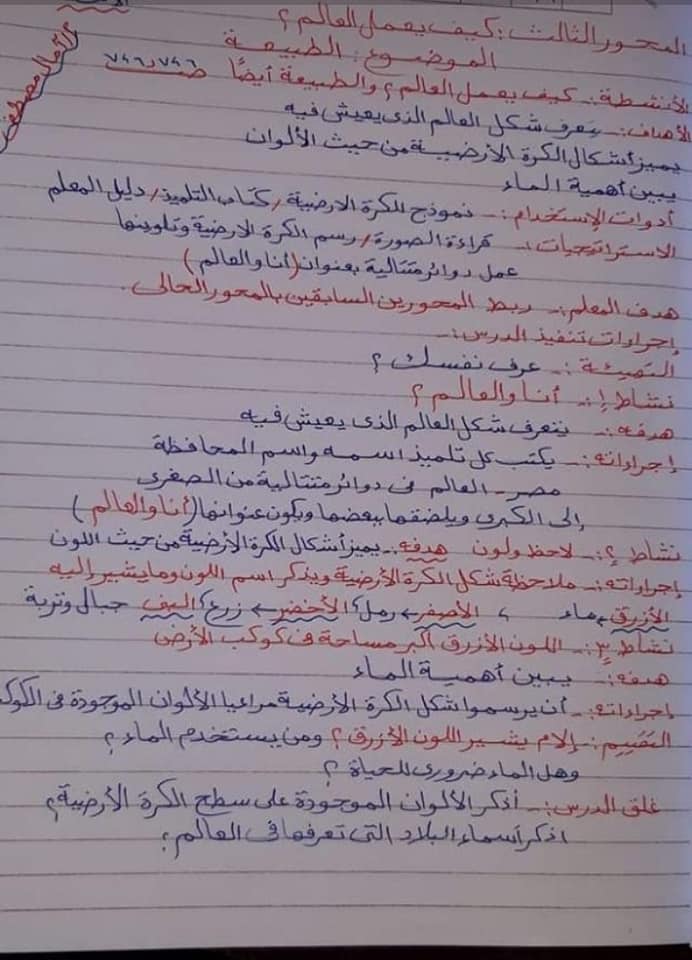 المحور الثالث: كيف يعمل العالم؟
الموضوع: الطبيعة
الأنشطة:- كيف يعمل العالم؟ والطبيعة أيضًا
الأهداف:- يتعرف شكل العالم الذى يعيش فيه
يميز أشكال الكرة الأرضية من حيث الألوان
يبين أهمية الماء
أدوات الإستخدام:- نموذج للكرة الارضية/كتاب التلميذ/دليل المعلم
الاستراتيجيات:- قراءة الصورة/رسم الكرة الارضية وتلوينها
عمل دوائر متتالية بعنوان (أنا والعالم)
هدف المعلم:- ربط المحورين السابقين بالمحور الحالى.
إجراءات تنفيذ الدرس:-
التهيئة:- عرف نفسك؟
نشاط ١:- أنا والعالم؟
هدفه:- يتعرف شكل العالم الذى يعيش فيه
إجراءاته:- يكتب كل تلميذ اسمه واسم المحافظة
مصر - العالم فى دوائر متتالية من الصغرى
إلى الكبرى ويلضقها ببعضها ويكون عنوانها (أنا والعالم)
نشاط ٢:- لاحظ ولون هدفه- يميز أشكال الكرة الأرضية من حيث اللون
إجراءاته:- ملاحظة شكل الكرة الأرضية ويذكر اسم اللون وما يشير إليه
الأزرق ← ماء ، الأصفر ← رمل، الأخضر ← زرع، البنى جبال وتربة
نشاط ٣:- اللون الأزرق أكبر مساحة فى كوكب الأرض
هدفه:- يبين أهمية الماء
إجراءاته:- أن يرسموا شكل الكرة الأرضية مراعيا الألوان الموجودة فى الكوك
التقييم:- إلام يشير اللون الأزرق؟ ومن يستخدم الماء؟
وهل الماء ضرورى للحياة؟
غلق الدرس:- أذكر الألوان الموجودة على سطح الكرة الأرضية؟
اذكر أسماء البلاد التى تعرفها فى العالم؟